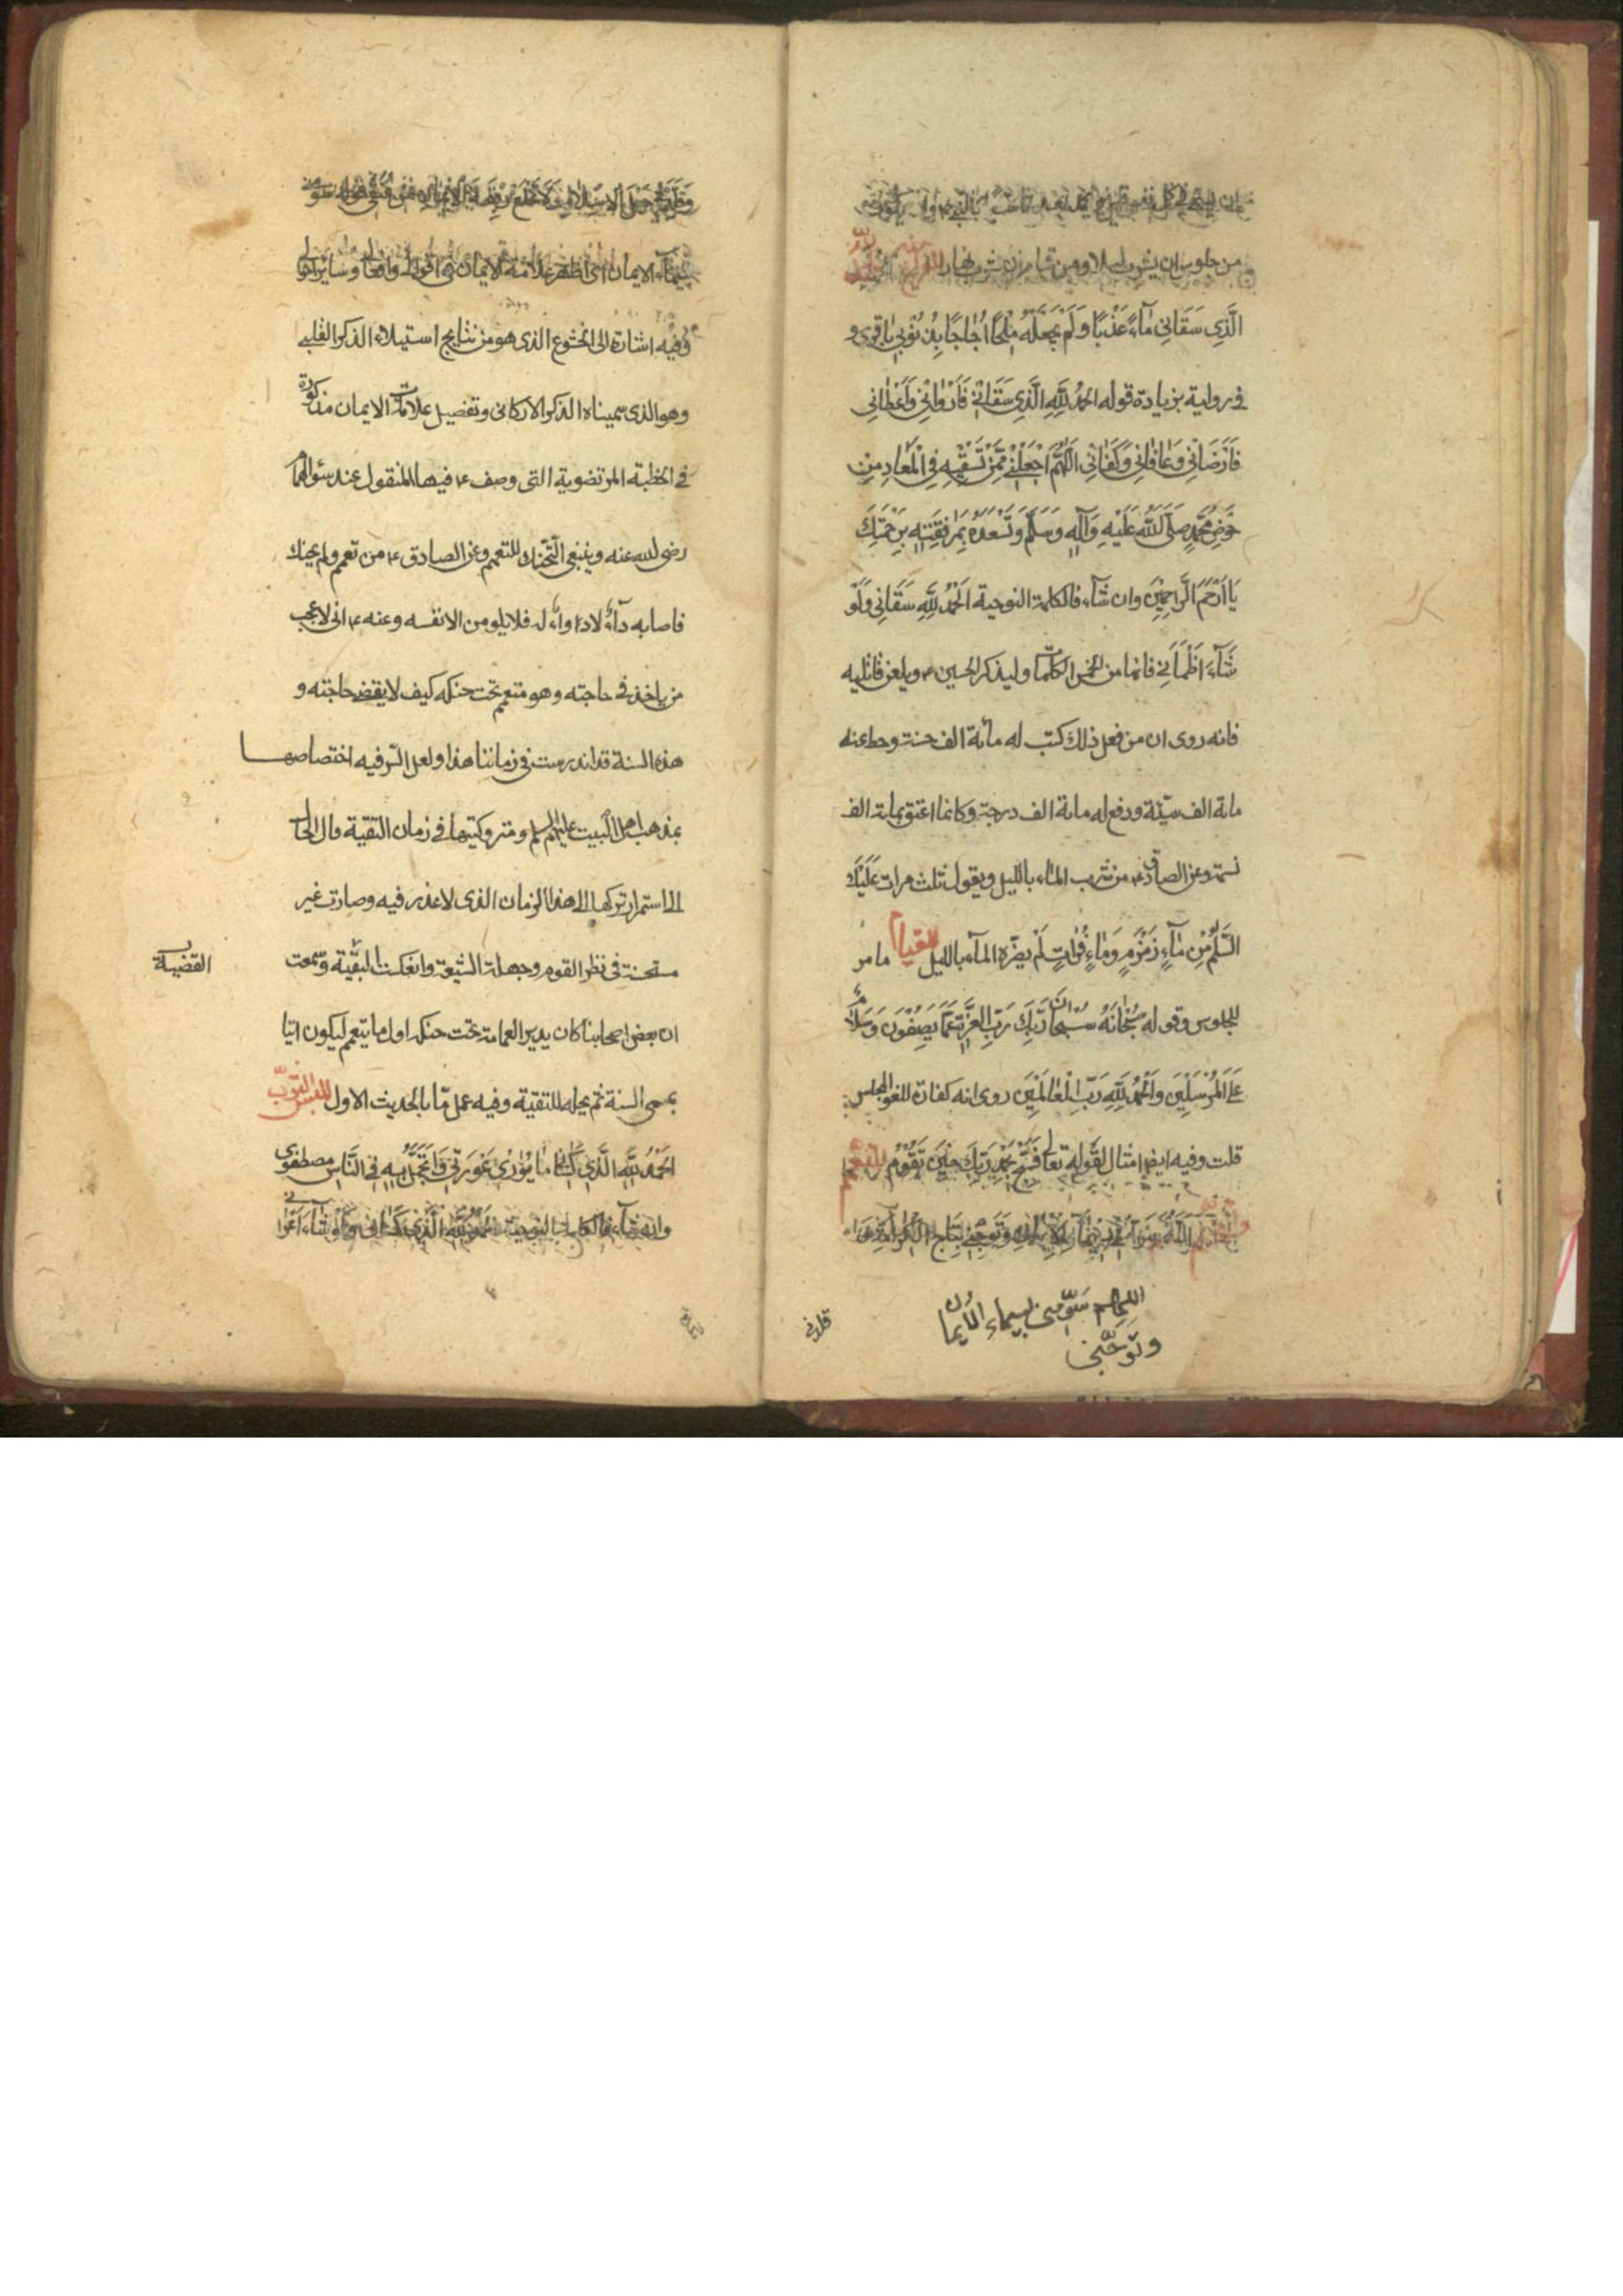 من جلوس ان يشرب ليلا ومن قيام ان يشرب نهارا للفراغ منه الحمد لله
الَّذِى سَقَانِى مَآءً عَذْبًا وَلَمْ يَجْعَلْهُ مِلْحًا اُجَاجًا بِذُنُوبِى باقرى و
فى رواية بزيادة قوله الحمدُ لِلّٰهِ الَّذِى سَقَانِى فَاَرْوَانِى وَاَعْطَانِى
فَاَرْضَانِى وَعَافَانِى وَكَفَانِى اَللّٰهُمَّ اجْعَلْنِى مِمَّنْ تَسْقِيهِ فِى الْمَعَادِ مِنْ
حَوْضِ مُحَمَّدٍ صَلَّى اللّٰهُ عَلَيْهِ وَآلِهِ وَسَلَّمَ وَتُسْعِدُهُ بِمُرَافَقَتِهِ بِرَحْمَتِكَ
يَا اَرْحَمَ الرَّاحِمِينَ وان شآء فالكلمة النوحية اَلْحَمْدُ لِلّٰهِ سَقَانِى وَلَوْ
شَآءَ اَظْمَاَنِى فانها من الخمس الكلمات وليذكر الحسين ء ويلعن قاتليه
فانه روى ان من فعل ذلك كتب له مائة الف حسنة وحط عنه
مائة الف سيّئة ورفع له مائة الف درجة وكانما اعتق مائة الف
نسمة وعن الصادق ء من شرب المآء بالليل ويقول ثلث مرات عَلَيْكَ
السَّلٰمُ مِنْ مَآءِ زَمْزَمٍ وَمَاءِ فُرَاتٍ لَمْ يضرّه المآء بالليل للقيام ما مر
للجلوس وقوله سُبْحَانَهُ سُبْحَانَ رَبِّكَ رَبِّ الْعِزَّةِ عَمَّا يَصِفُونَ وَسَلَامٌ
عَلَى الْمُرْسَلِينَ وَالْحَمْدُ لِلّٰهِ رَبِّ الْعَالَمِينَ روى انه كفارة للغو المجلس
قلت وفيه ايضا امتثال لقوله تعالى فَسَبِّحْ بِحَمْدِ رَبِّكَ حِينَ تَقُومُ للتعمم
اللهم سَوّمنى بسيماء الايمان
وتوّجنى
قلدنى
سيمآء الايمان اى اظهر علامة الايمان فى اقوالى وافعالى وسائر احوالى
وفيه اشارة الى الخشوع الذى هو من نتايج استيلاء الذكر القلبى
وهو الذى سميناه الذكر الاركانى وتفصيل علامات الايمان مذكورة
فى الخطبة المرتضوية التى وصف ء فيها المنقول عند سؤال همام
رضى الله عنه وينبغى التحنك للتعمم وعن الصادق ء من تعمم ولم يحنك
فاصابه دآء لا دوآء له فلا يلومن الا نفسه وعنه ء انى لاعجب
من ياخذ فى حاجته وهو متعمم تحت حنكه كيف لا يقضى حاجته و
هذه السنة قد اندرست فى زماننا هذا ولعل السّر فيه اختصاصها
بمذهب اهل البيت عليهم السلم ومتروكيتها فى زمان التقية وآل الحال
الى استمرار تركها الى هذا الزمان الذى لا عذر فيه وصارت غير
مستحسنة فى نظر القوم وجهلة الشيعة وانعكست التقية وسمعت
القضية
ان بعض اصحابنا كان يدير العمامة تحت حنكه اول ما يتعمم ليكون اتيا
بمحى السنة ثم يحله للتقية وفيه عمل مّا بالحديث الاول للبس الثوب
اَلْحَمْدُ لِلّٰهِ الَّذِى كَسَانِى مَا يُوَارِى عَوْرَتِى وَاَتَجَمَّلُ بِهِ فِى النَّاسِ مصطفوى
وان شآء فالكلمة النوحية اَلْحَمْدُ لِلّٰهِ الَّذِى كَسَانِى وَلَوْ شَآءَ اَعْرَانِى